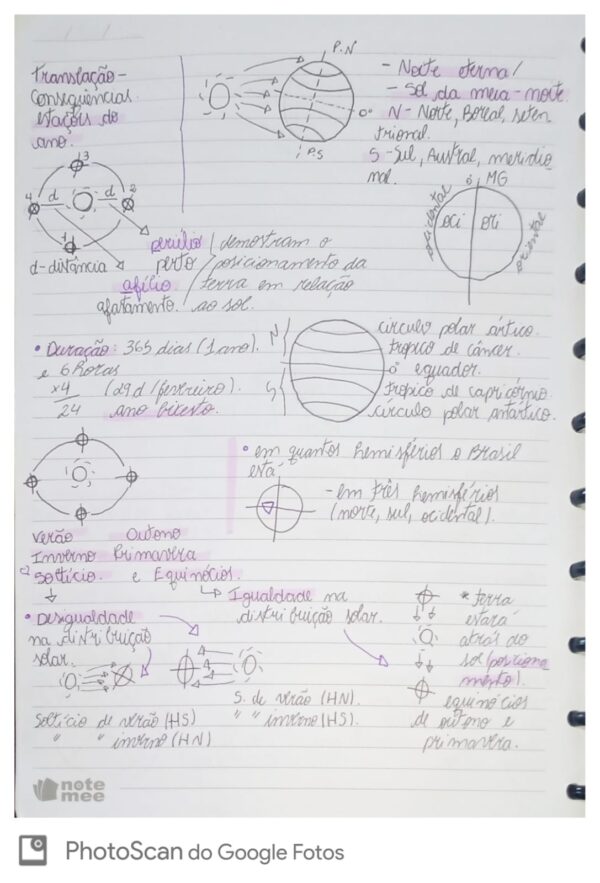 Translação -
Consequências
estações do
ano.
P.N
0°
P.S
- Noite eterna/
- Sol da meia-noite
N - Norte, Boreal, seten
trional.
S - Sul, Austral, meridio
nal.
3
4 d d 2
1
d - distância
periélio
perto
afélio
afastamento.
demostram o
posicionamento da
terra em relação
ao sol.
0 MG
ocidental oci ori oriental
• Duração: 365 dias (1 ano).
e 6 horas
x4 (29 d/fevereiro).
24 ano bisesto.
N
S
circulo polar ártico.
tropico de câncer.
0° equador.
tropico de capricórnio
circulo polar antártico.
• em quantos hemisférios o Brasil
está
- em três hemisférios
(norte, sul, ocidental).
verão Outono
Inverno Primavera
Soltício e Equinócios.
• Desigualdade
na distribuição
solar.
Igualdade na
distribuição solar.
Soltício de verão (HS)
" " inverno (HN)
S. de verão (HN).
" " inverno (HS).
* terra
estará
atrás do
sol (posiciona
mento).
equinócios
de outono e
primavera.
note
mee
PhotoScan do Google Fotos